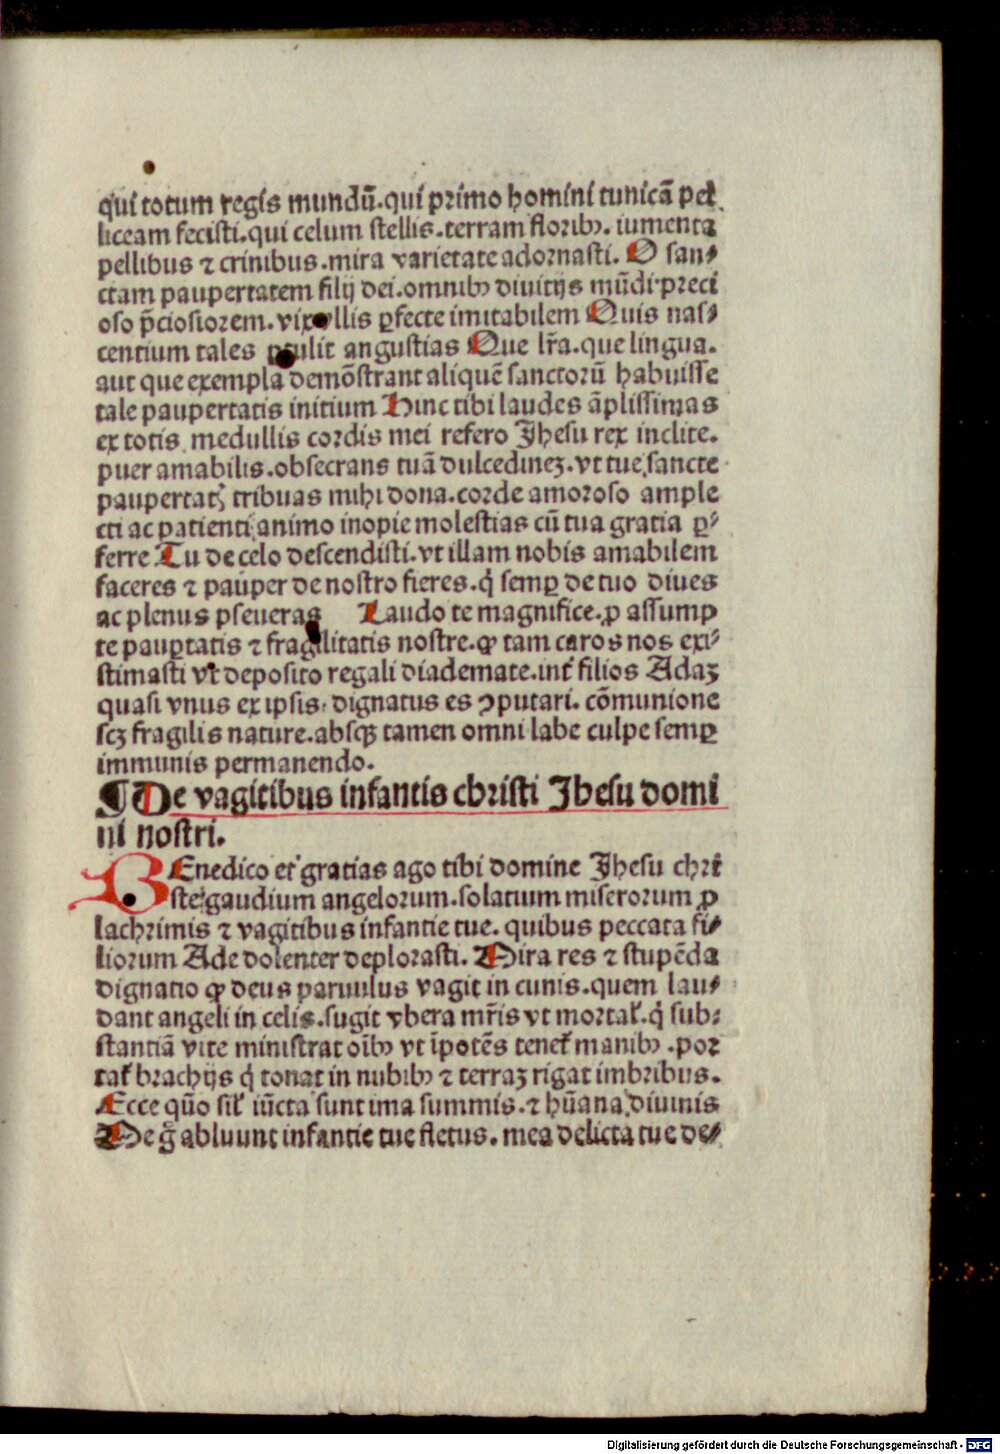 qui totum regis mundū.qui primo homini tunicā pel
liceam fecisti.qui celum stellis.terram floribꝯ. iumenta
pellibus ⁊ crinibus.mira varietate adornasti. O san⸗
ctam paupertatem filij dei.omnibꝯ diuitijs mūdi preci
oso p̄ciosiorem. vix ollis ꝑfecte imitabilem Quis nas⸗
centium tales ptulit angustias Que lr̄a.que lingua.
aut que exempla demōstrant aliquē sanctorū habuisse
tale paupertatis initium Hinc tibi laudes āplissimas
ex totis medullis cordis mei refero Jhesu rex inclite.
puer amabilis.obsecrans tuā dulcedineꝫ.vt tue sancte
paupertatꝭ tribuas mihi dona.corde amoroso ample
cti ac patienti animo inopie molestias cū tua gratia ꝑ⸗
ferre Tu de celo descendisti.vt illam nobis amabilem
faceres ⁊ pauper de nostro fieres.q̇ semꝑ de tuo diues
ac plenus pseueras Laudo te magnifice.ꝓ assump
te pauꝑtatis ⁊ fragilitatis nostre.ꝙ tam caros nos exi⸗
stimasti vt deposito regali diademate.int̄ filios Adaꝫ
quasi vnus ex ipsis dignatus es ꝯputari. cōmunione
scꝫ fragilis nature.absqꝫ tamen omni labe culpe semꝑ
immunis permanendo.
¶ De vagitibus infantis christi Jhesu domi
ni nostri.
BEnedico et gratias ago tibi domine Jhesu chri
ste gaudium angelorum.solatium miserorum ꝓ
lachrimis ⁊ vagitibus infantie tue. quibus peccata fi⸗
liorum Ade dolenter deplorasti. Mira res ⁊ stupēda
dignatio ꝙ deus paruulus vagit in cunis.quem lau⸗
dant angeli in celis.sugit vbera mr̄is vt mortaƚ.q̇ sub⸗
stantiā vite ministrat oībꝯ vt īpotēs tenet̄ manibꝯ .por
tat̄ brachijs q̇ tonat in nubibꝯ ⁊ terraꝫ rigat imbribus.
Ecce quō siƚ iūcta sunt ima summis.⁊ hūana diuinis
Me g̊ abluunt infantie tue fletus. mea delicta tue de⸗
Digitalisierung gefördert durch die Deutsche Forschungsgemeinschaft - DFG